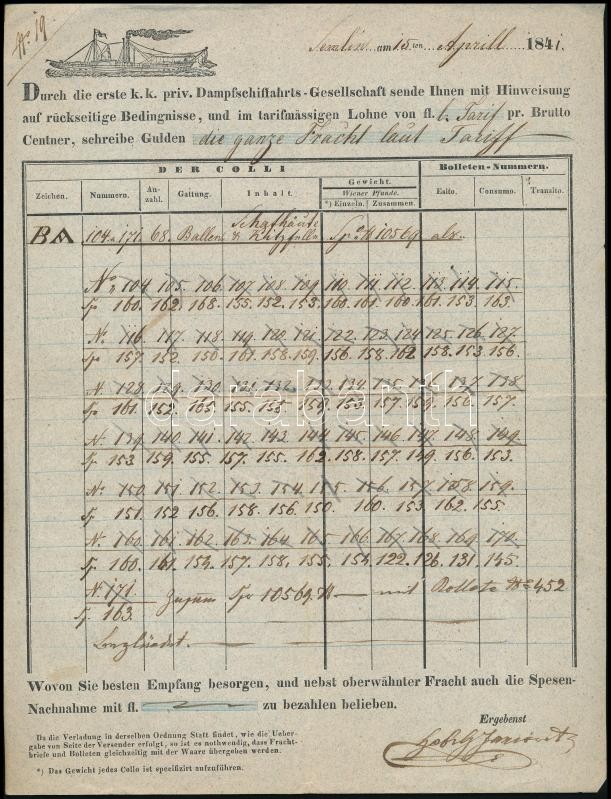 No 19
Semlin am 15ten Aprill 1841.
Durch die erste k. k. priv. Dampfschiffahrts-Gesellschaft sende Ihnen mit Hinweisung
auf rückseitige Bedingnisse, und im tarifmässigen Lohne von fl. Tarif pr. Brutto
Centner, schreibe Gulden die ganze Fracht laut Tariff
DER COLLI Bolleten-Nummern.
Zeichen. Nummern. Anzahl. Gattung. Inhalt. Gewicht. Wiener Pfunde. *) Einzeln. Zusammen. Esito. Consumo. Transito.
BA 104 a 171. 68. Ballen Schafhäute & Sp 10569 als.
No 104 105. 106. 107 108. 109. 110. 111. 112. 113. 114. 115.
Sp 160. 162. 168. 155. 152. 153. 160. 161. 160. 161. 153. 163.
No 116. 117. 118. 119. 120. 121. 122. 123. 124. 125. 126. 127.
Sp 157. 152. 150. 161. 158. 159. 156. 158. 162 158. 153. 156.
No 128. 129. 130. 131. 132. 133. 134. 135. 136. 137. 138
Sp 161. 152. 165. 155. 158. 159. 153. 157. 159. 156. 157.
No 139. 140. 141. 142. 143. 144. 145. 146. 147. 148. 149.
Sp 153 159. 155. 157. 155. 162. 158. 157. 149. 156. 153.
No 150. 151. 152. 153. 154. 155. 156. 157. 158. 159.
Sp. 151. 152 156. 158. 156. 150. 160. 153. 162. 155.
No 160. 161. 162. 163. 164. 165. 166. 167. 168. 169. 170.
Sp. 160. 161. 154. 157. 158. 155. 154. 122. 126. 131. 145.
No 171.
Sp. 163. Sp 10569. mit Bollete No 452
darabanth
Wovon Sie besten Empfang besorgen, und nebst oberwähnter Fracht auch die Spesen-
Nachnahme mit fl. zu bezahlen belieben.
Ergebenst
Da die Verladung in derselben Ordnung Statt findet, wie die Ueber-
gabe von Seite der Versender erfolgt, so ist es nothwendig, dass Fracht-
briefe und Bolleten gleichzeitig mit der Waare übergeben werden.
*) Das Gewicht jedes Collo ist specifizirt aufzuführen.